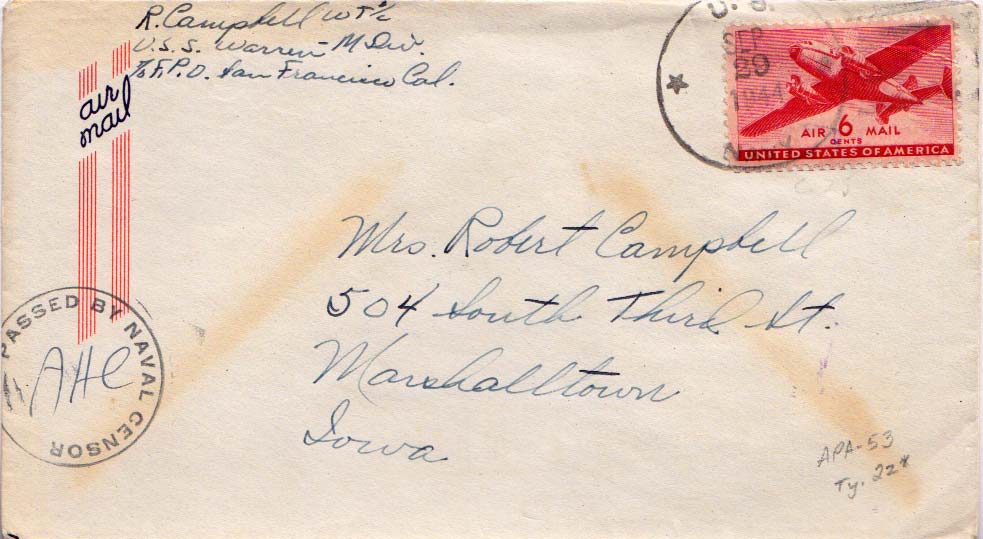 R. Campbell WT 2/c
U.S.S. Warren - M Div.
% F.P.O. San Francisco Cal.
air
mail
U. S.
SEP
29
1944
NAVY
AIR 6 MAIL
CENTS
UNITED STATES OF AMERICA
Mrs. Robert Campbell
504 South Third St.
Marshalltown
Iowa
PASSED BY NAVAL CENSOR
AHC
APA-53
Ty. 22*